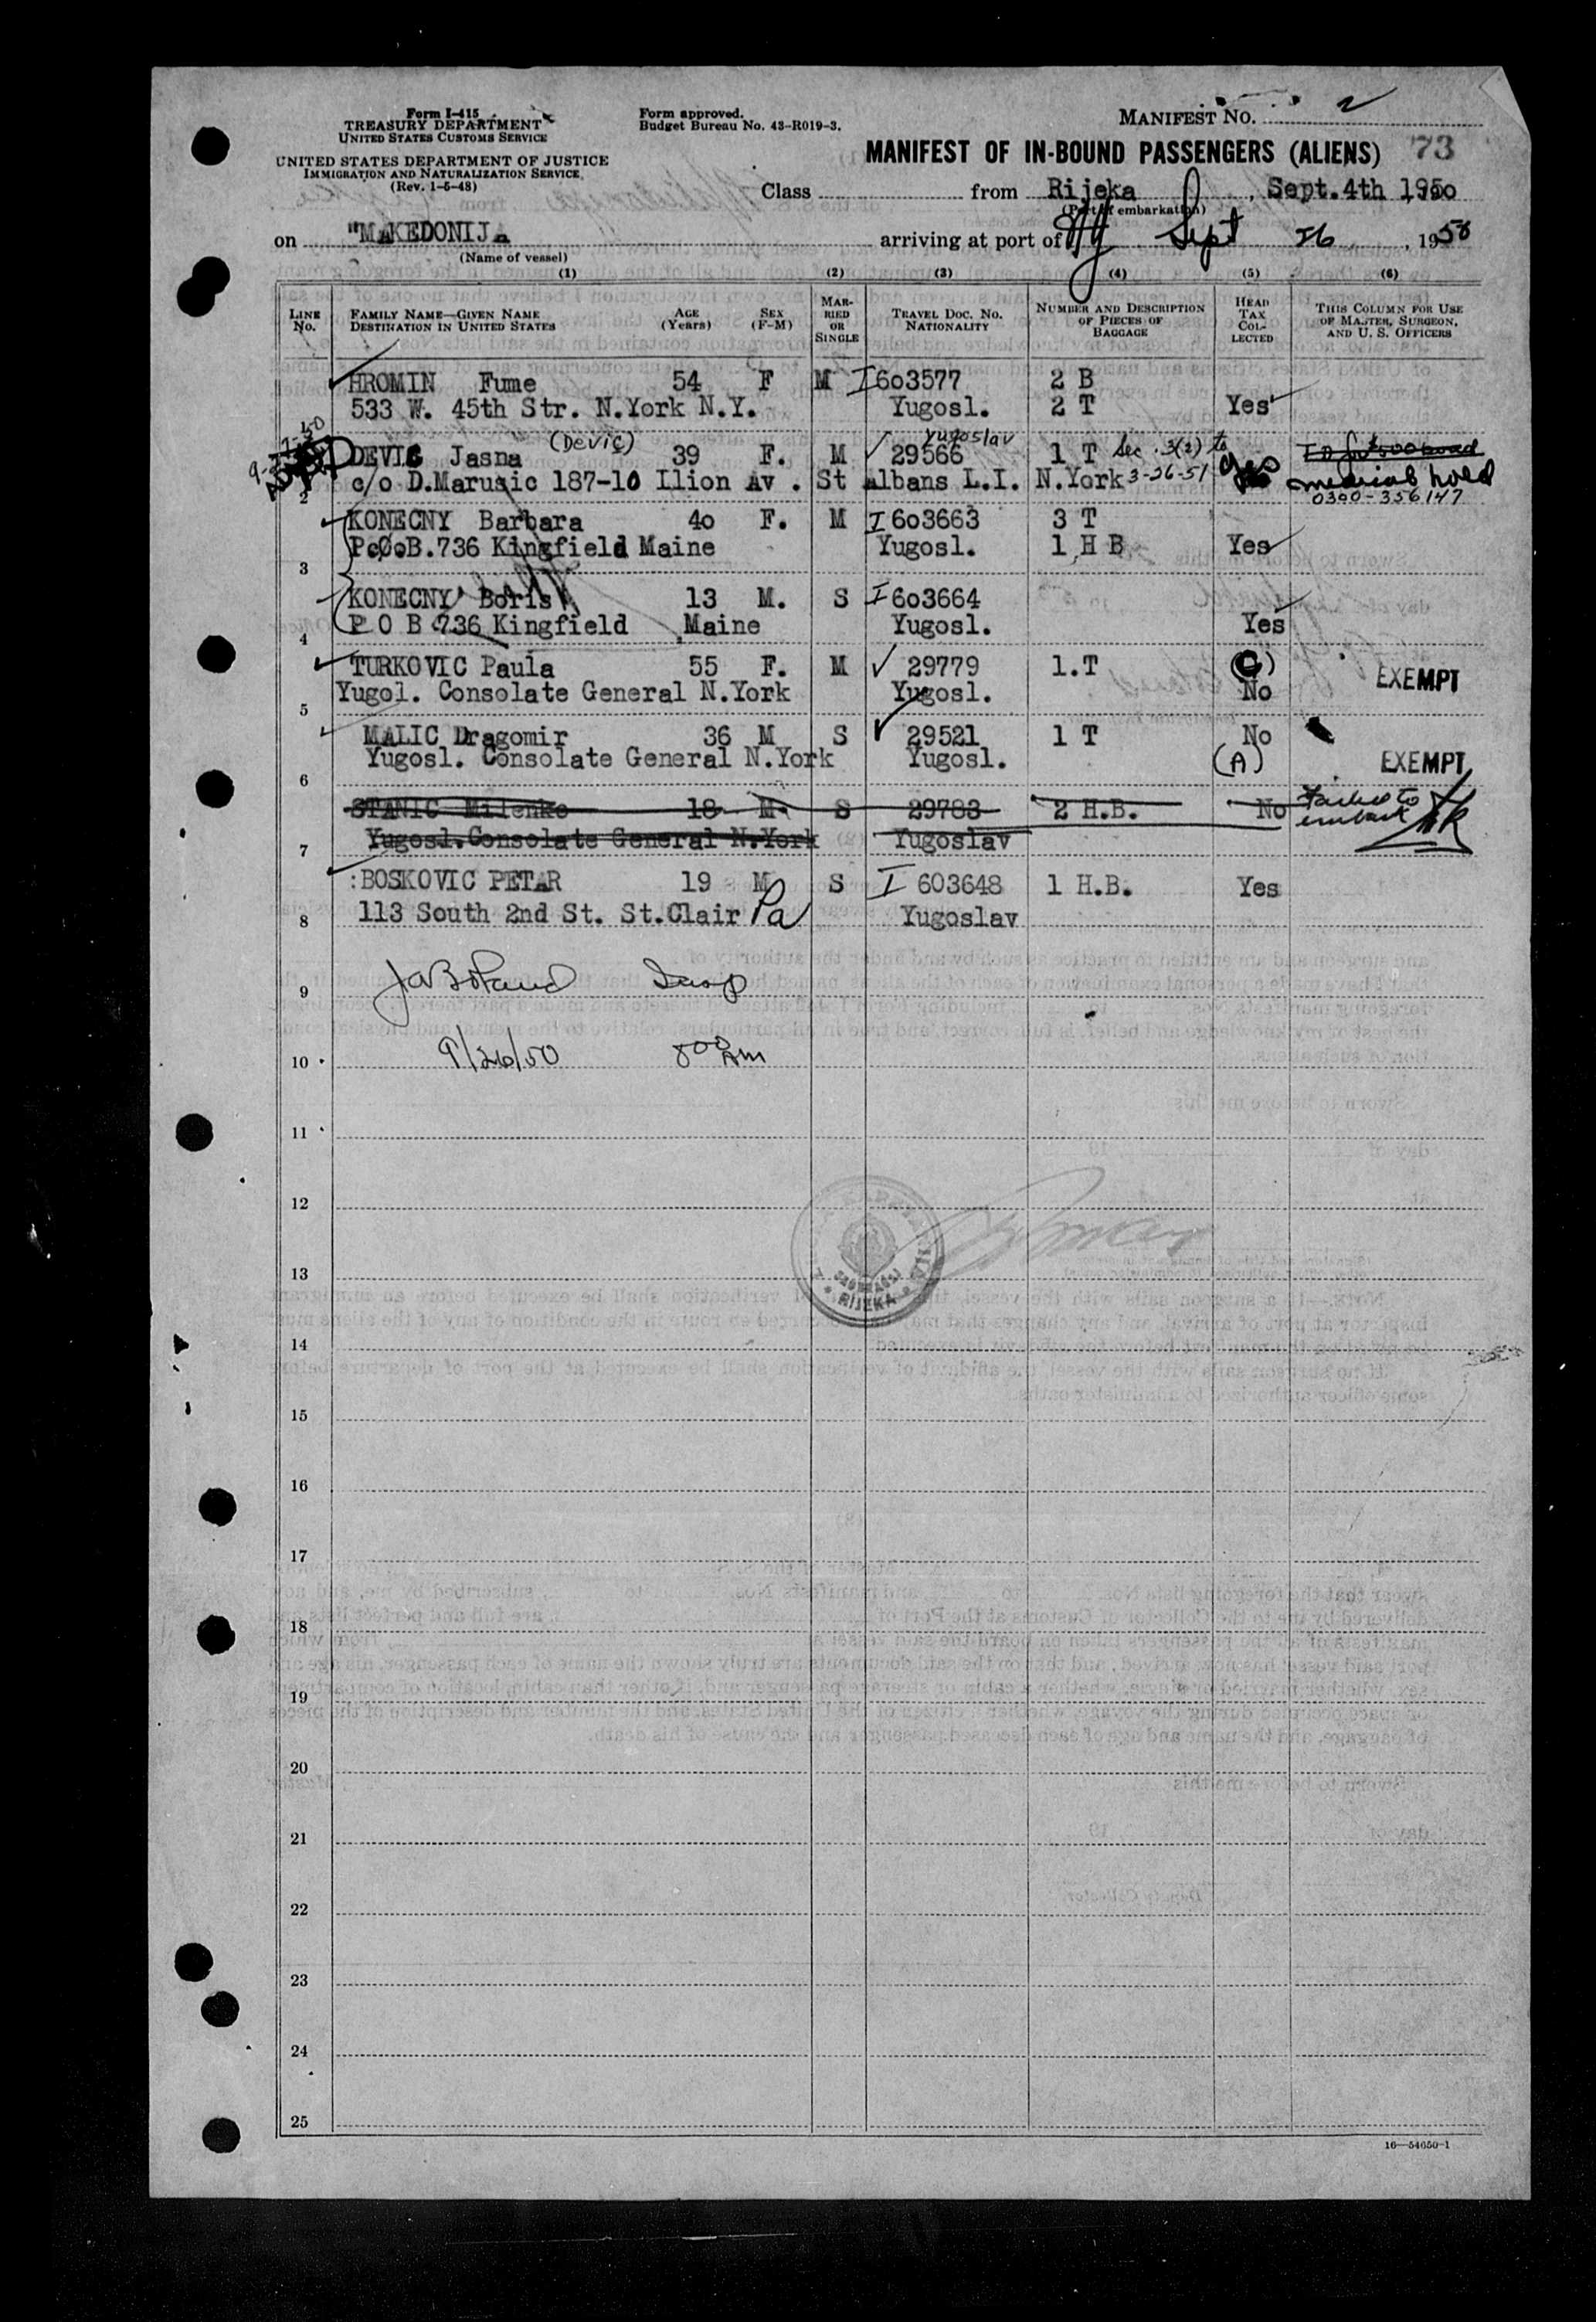 Form I-415
TREASURY DEPARTMENT
UNITED STATES CUSTOMS SERVICE
UNITED STATES DEPARTMENT OF JUSTICE
IMMIGRATION AND NATURALIZATION SERVICE
(Rev. 1-5-48)
Form approved.
Budget Bureau No. 43-R019-3.
MANIFEST NO. 2
MANIFEST OF IN-BOUND PASSENGERS (ALIENS) 73
Class from Rijeka, Sept.4th 1950
(Port of embarkation)
on "MAKEDONIJA arriving at port of NY Sept 26, 1950
(Name of vessel)
(1) (2) (3) (4) (5) (6)
LINE No. FAMILY NAME—GIVEN NAME DESTINATION IN UNITED STATES AGE (Years) SEX (F-M) MARRIED OR SINGLE TRAVEL DOC. NO. NATIONALITY NUMBER AND DESCRIPTION OF PIECES OF BAGGAGE HEAD TAX COLLECTED THIS COLUMN FOR USE OF MASTER, SURGEON, AND U. S. OFFICERS
HROMIN Fume 54 F M I 603577 2 B
533 W. 45th Str. N.York N.Y. Yugosl. 2 T Yes
(Devič) Yugoslav
DEVIC Jasna 39 F. M 29566 1 T Sec. 3(2) to Yes
2 c/o D.Marusic 187-10 Ilion Av. St Albans L.I. N.York 3-26-51 medical hold
0300-356147
KONECNY Barbara 40 F. M I 603663 3 T
P.O.B.736 Kingfield Maine Yugosl. 1 H B Yes
3
KONECNY Boris 13 M. S I 603664
4 P O B 736 Kingfield Maine Yugosl. Yes
TURKOVIC Paula 55 F. M 29779 1.T (C) EXEMPT
5 Yugol. Consolate General N.York Yugosl. No
MALIC Dragomir 36 M S 29521 1 T No
6 Yugosl. Consolate General N.York Yugosl. (A) EXEMPT
STANIC Milenko 18 M. S 29783 2 H.B. No Failed to embark
7 Yugosl.Consolate General N.York Yugoslav
:BOSKOVIC PETAR 19 M S I 603648 1 H.B. Yes
8 113 South 2nd St. St.Clair Pa Yugoslav
9 Insp
10 9/26/50 8 00 AM
11
12
13
RIJEKA
14
15
16
17
18
19
20
21
22
23
24
25
16—54650-1